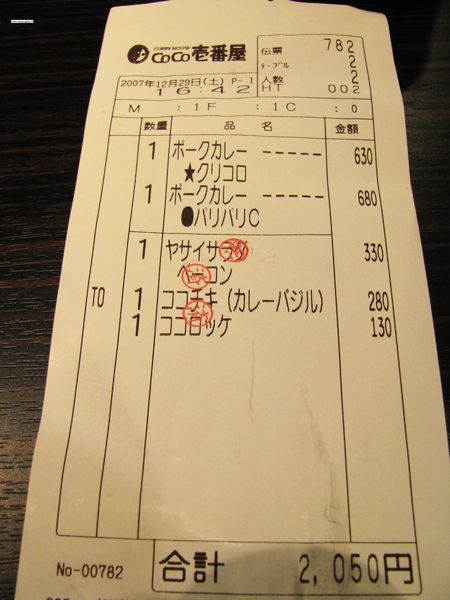 CURRY HOUSE
CoCo壱番屋
伝票 782
テーブル 2
人数 2
HT 002
2007年12月29日(土) P- 1
16:42
M :1F :1C :0
数量 品 名 金額
1 ポークカレー ----- 630
★クリコロ
1 ポークカレー ----- 680
●パリパリC
1 ヤサイサラダ 330
ベーコン
TO 1 ココチキ(カレーバジル) 280
1 ココロッケ 130
No-00782
合計 2,050円